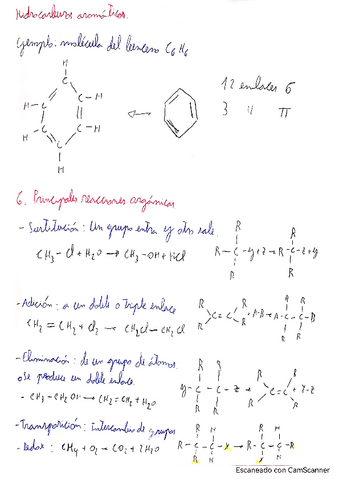 Hidrocarburos aromáticos.
Ejemplo: molécula del benceno C6H6
12 enlaces σ
3 " π
6. Principales reacciones orgánicas
- Sustitución: Un grupo entra y otro sale.
CH3-Cl + H2O → CH3-OH + HCl
- Adición: a un doble o triple enlace
CH2=CH2 + Cl2 → CH2Cl-CH2Cl
- Eliminación: de un grupo de átomos.
Se produce un doble enlace.
- CH3-CH2OH → CH2=CH2 + H2O
- Transposición: Intercambio de grupos
- Redox: CH4 + O2 → CO2 + 2H2O
Escaneado con CamScanner